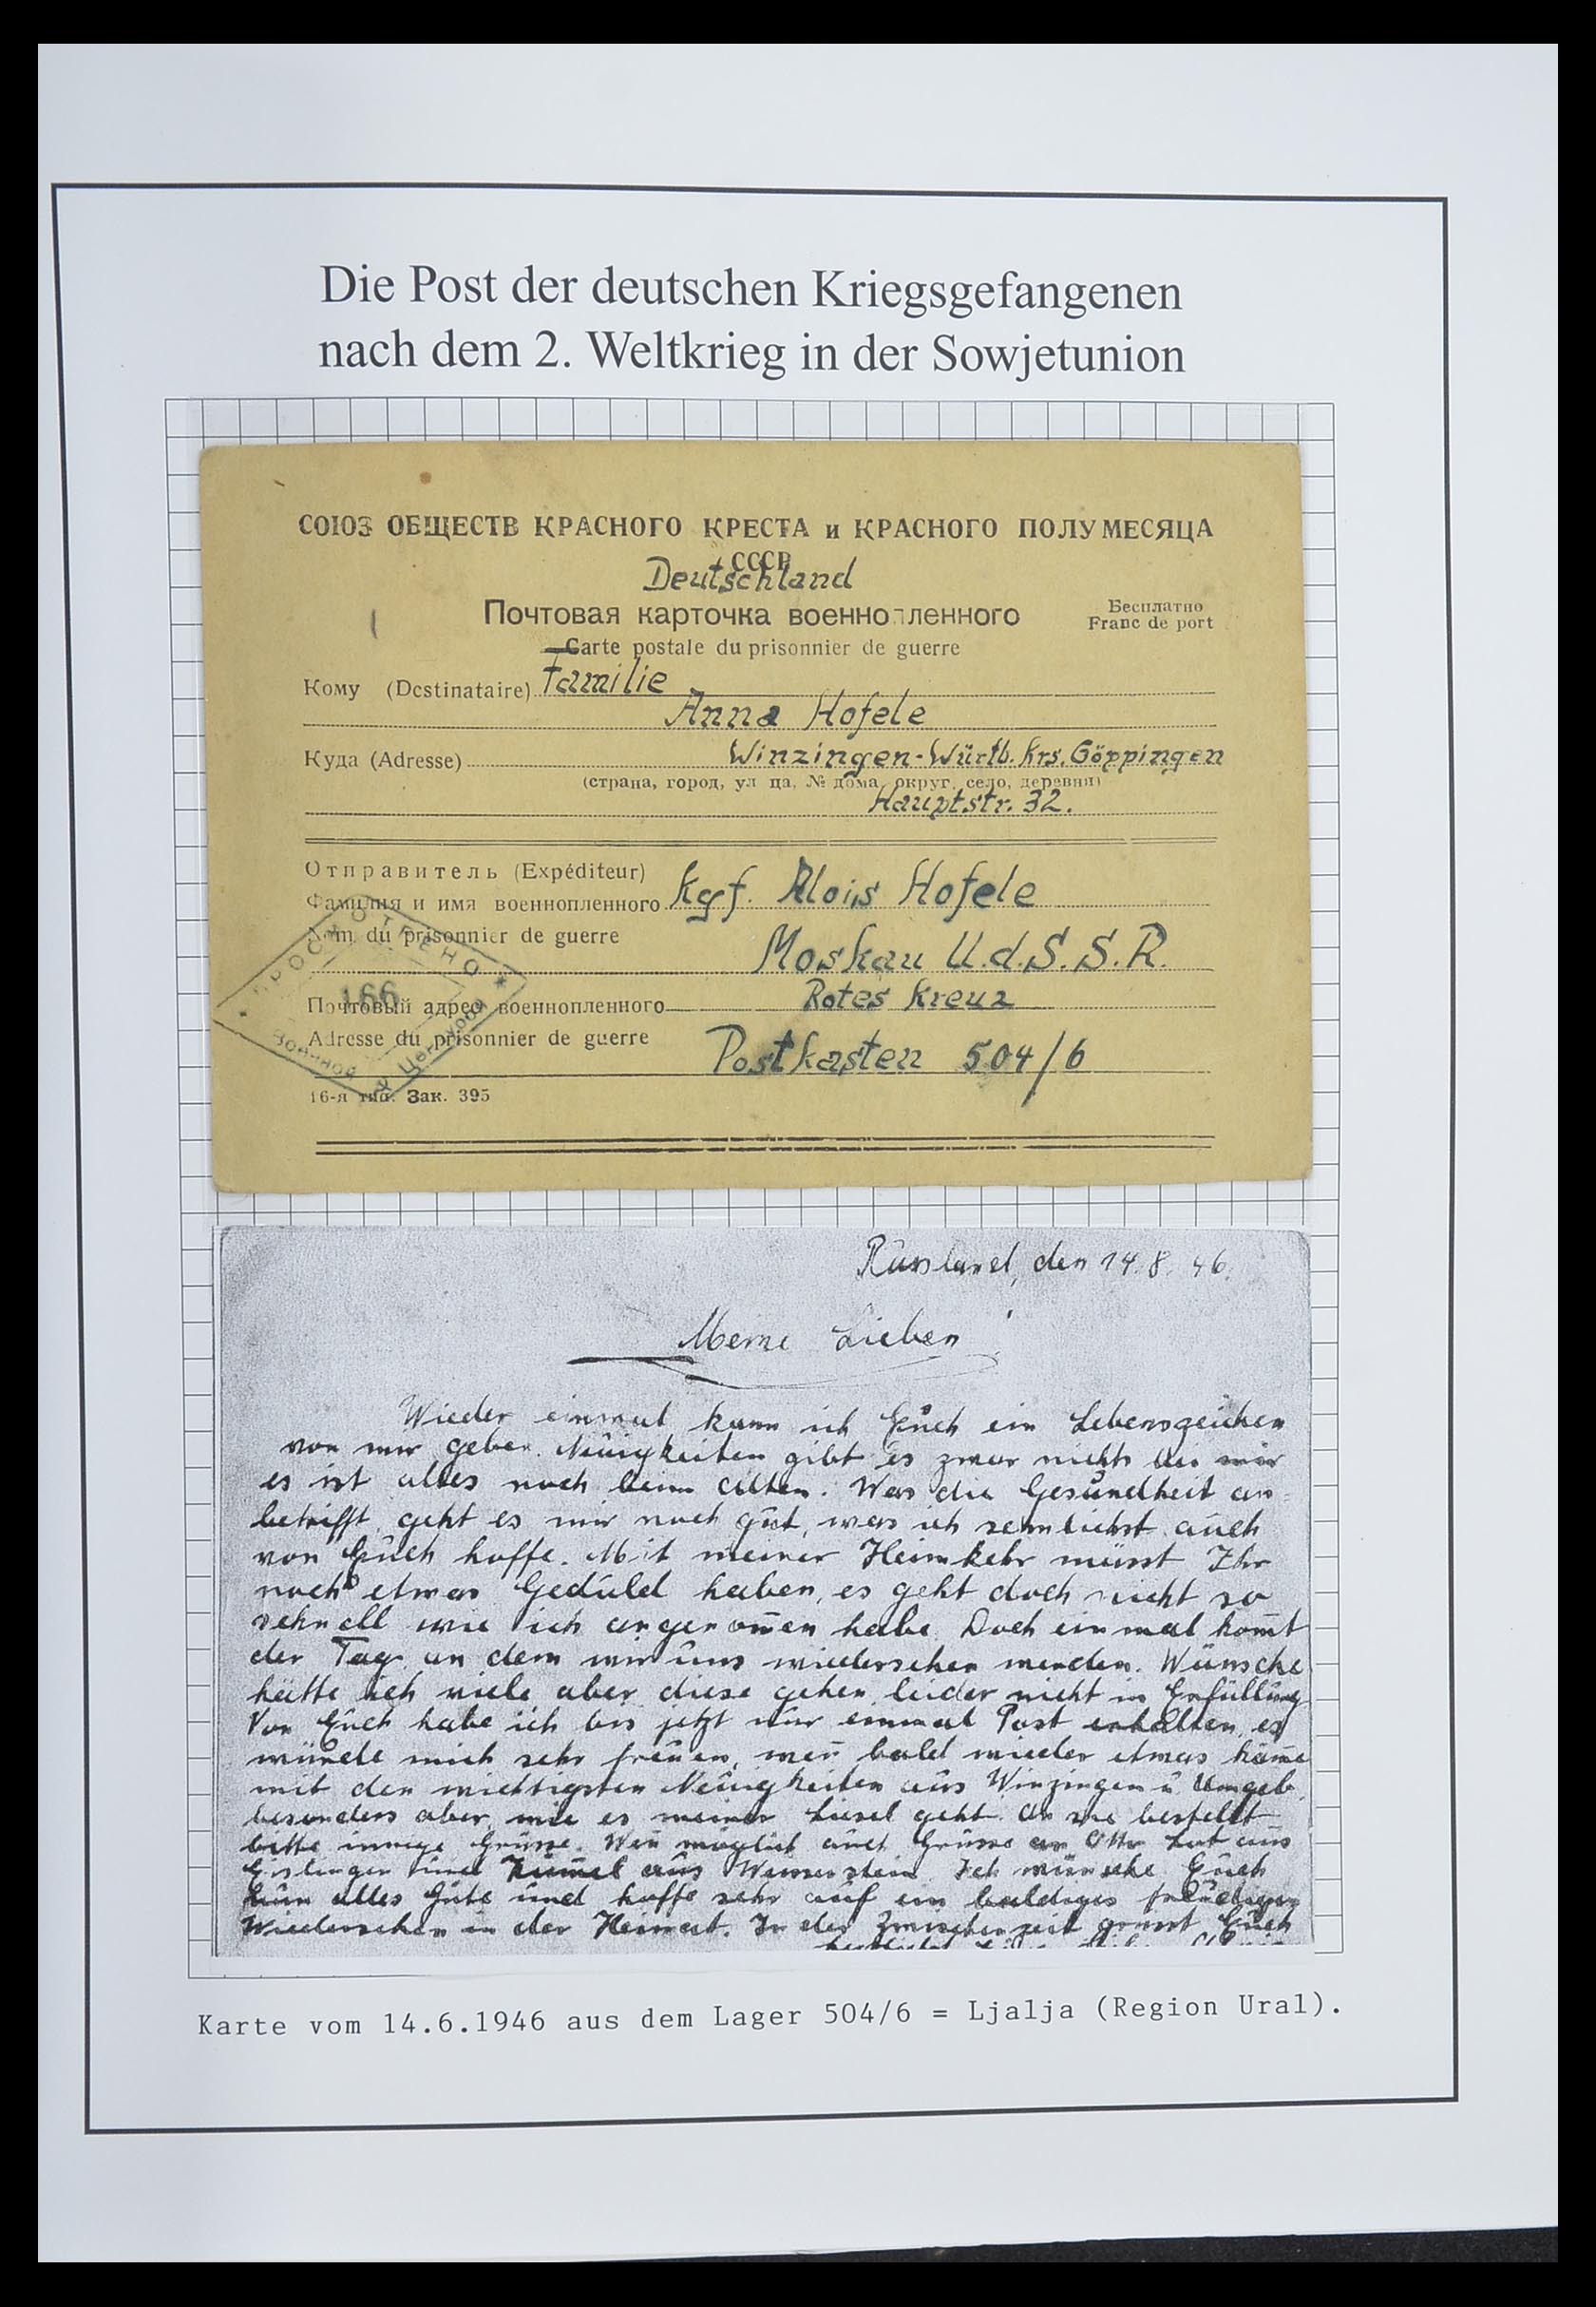 Die Post der deutschen Kriegsgefangenen
nach dem 2. Weltkrieg in der Sowjetunion
СОЮЗ ОБЩЕСТВ КРАСНОГО КРЕСТА и КРАСНОГО ПОЛУМЕСЯЦА
СССР
Deutschland
Почтовая карточка военнопленного
Бесплатно
Franc de port
Carte postale du prisonnier de guerre
Кому (Destinataire) Familie
Anna Hofele
Куда (Adresse) Winzingen-Württb. Krs. Göppingen
(страна, город, ул ца, № дома, округ, село, деревня)
Hauptstr. 32.
Отправитель (Expéditeur)
Фамилия и имя военнопленного Kgf. Alois Hofele
Nom du prisonnier de guerre
Moskau U.d.S.S.R.
Почтовый адрес военнопленного Rotes Kreuz
Adresse du prisonnier de guerre
Postkasten 504/6
166
16-я тип. Зак. 395
Russland, den 14.8.46.
Meine Lieben!
Wieder einmal kann ich Euch ein Lebenszeichen
von mir geben. Neuigkeiten gibt es zwar nicht bei mir
es ist alles noch beim Alten. Was die Gesundheit an-
betrifft geht es mir noch gut, was ich sehnlichst auch
von Euch hoffe. Mit meiner Heimkehr müsst Ihr
noch etwas Geduld haben, es geht doch nicht so
schnell wie ich angenom̄en habe. Doch einmal kom̄t
der Tag an dem wir uns wiedersehen werden. Wünsche
hätte ich viele aber diese gehen leider nicht in Erfüllung
Von Euch habe ich bis jetzt nur einmal Post erhalten, es
würde mich sehr freuen, wen̄ bald wieder etwas käme
mit den wichtigsten Neuigkeiten aus Winzingen u. Umgeb.
besonders aber wie es meiner Liesel geht. An sie bestellt
bitte innige Grüsse. Wen̄ möglich auch Grüsse an Otto aus
Eislingen und aus Weissenstein. Ich wünsche Euch
nun alles Gute und hoffe sehr auf ein baldiges freudiges
Wiedersehen in der Heimat. In der Zwischenzeit grüsst Euch
Karte vom 14.6.1946 aus dem Lager 504/6 = Ljalja (Region Ural).